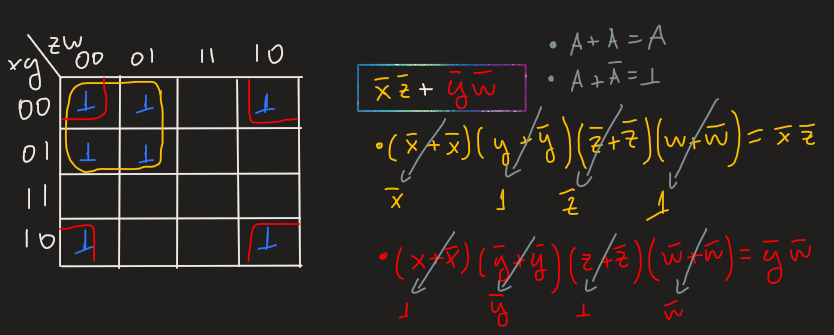 zw
xy 00 01 11 10
00 1 1 1
01 1 1
11
10 1 1
• A + A = A
• A + A̅ = 1
x̅ z̅ + y̅ w̅
• (x̅ + x̅)(y + y̅)(z̅ + z̅)(w + w̅) = x̅ z̅
x̅ 1 z̅ 1
• (x + x̅)(y̅ + y̅)(z + z̅)(w̅ + w̅) = y̅ w̅
1 y̅ 1 w̅